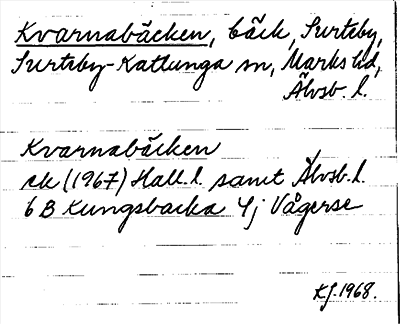 Kvarnabäcken, bäck, Surteby,
Surteby-Kattunga sn, Marks hd,
Älvsb. l.
Kvarnabäcken
ek (1967) Hall. l. samt Älvsb. l.
6 B Kungsbacka 4j Vågerse
KJ. 1968.